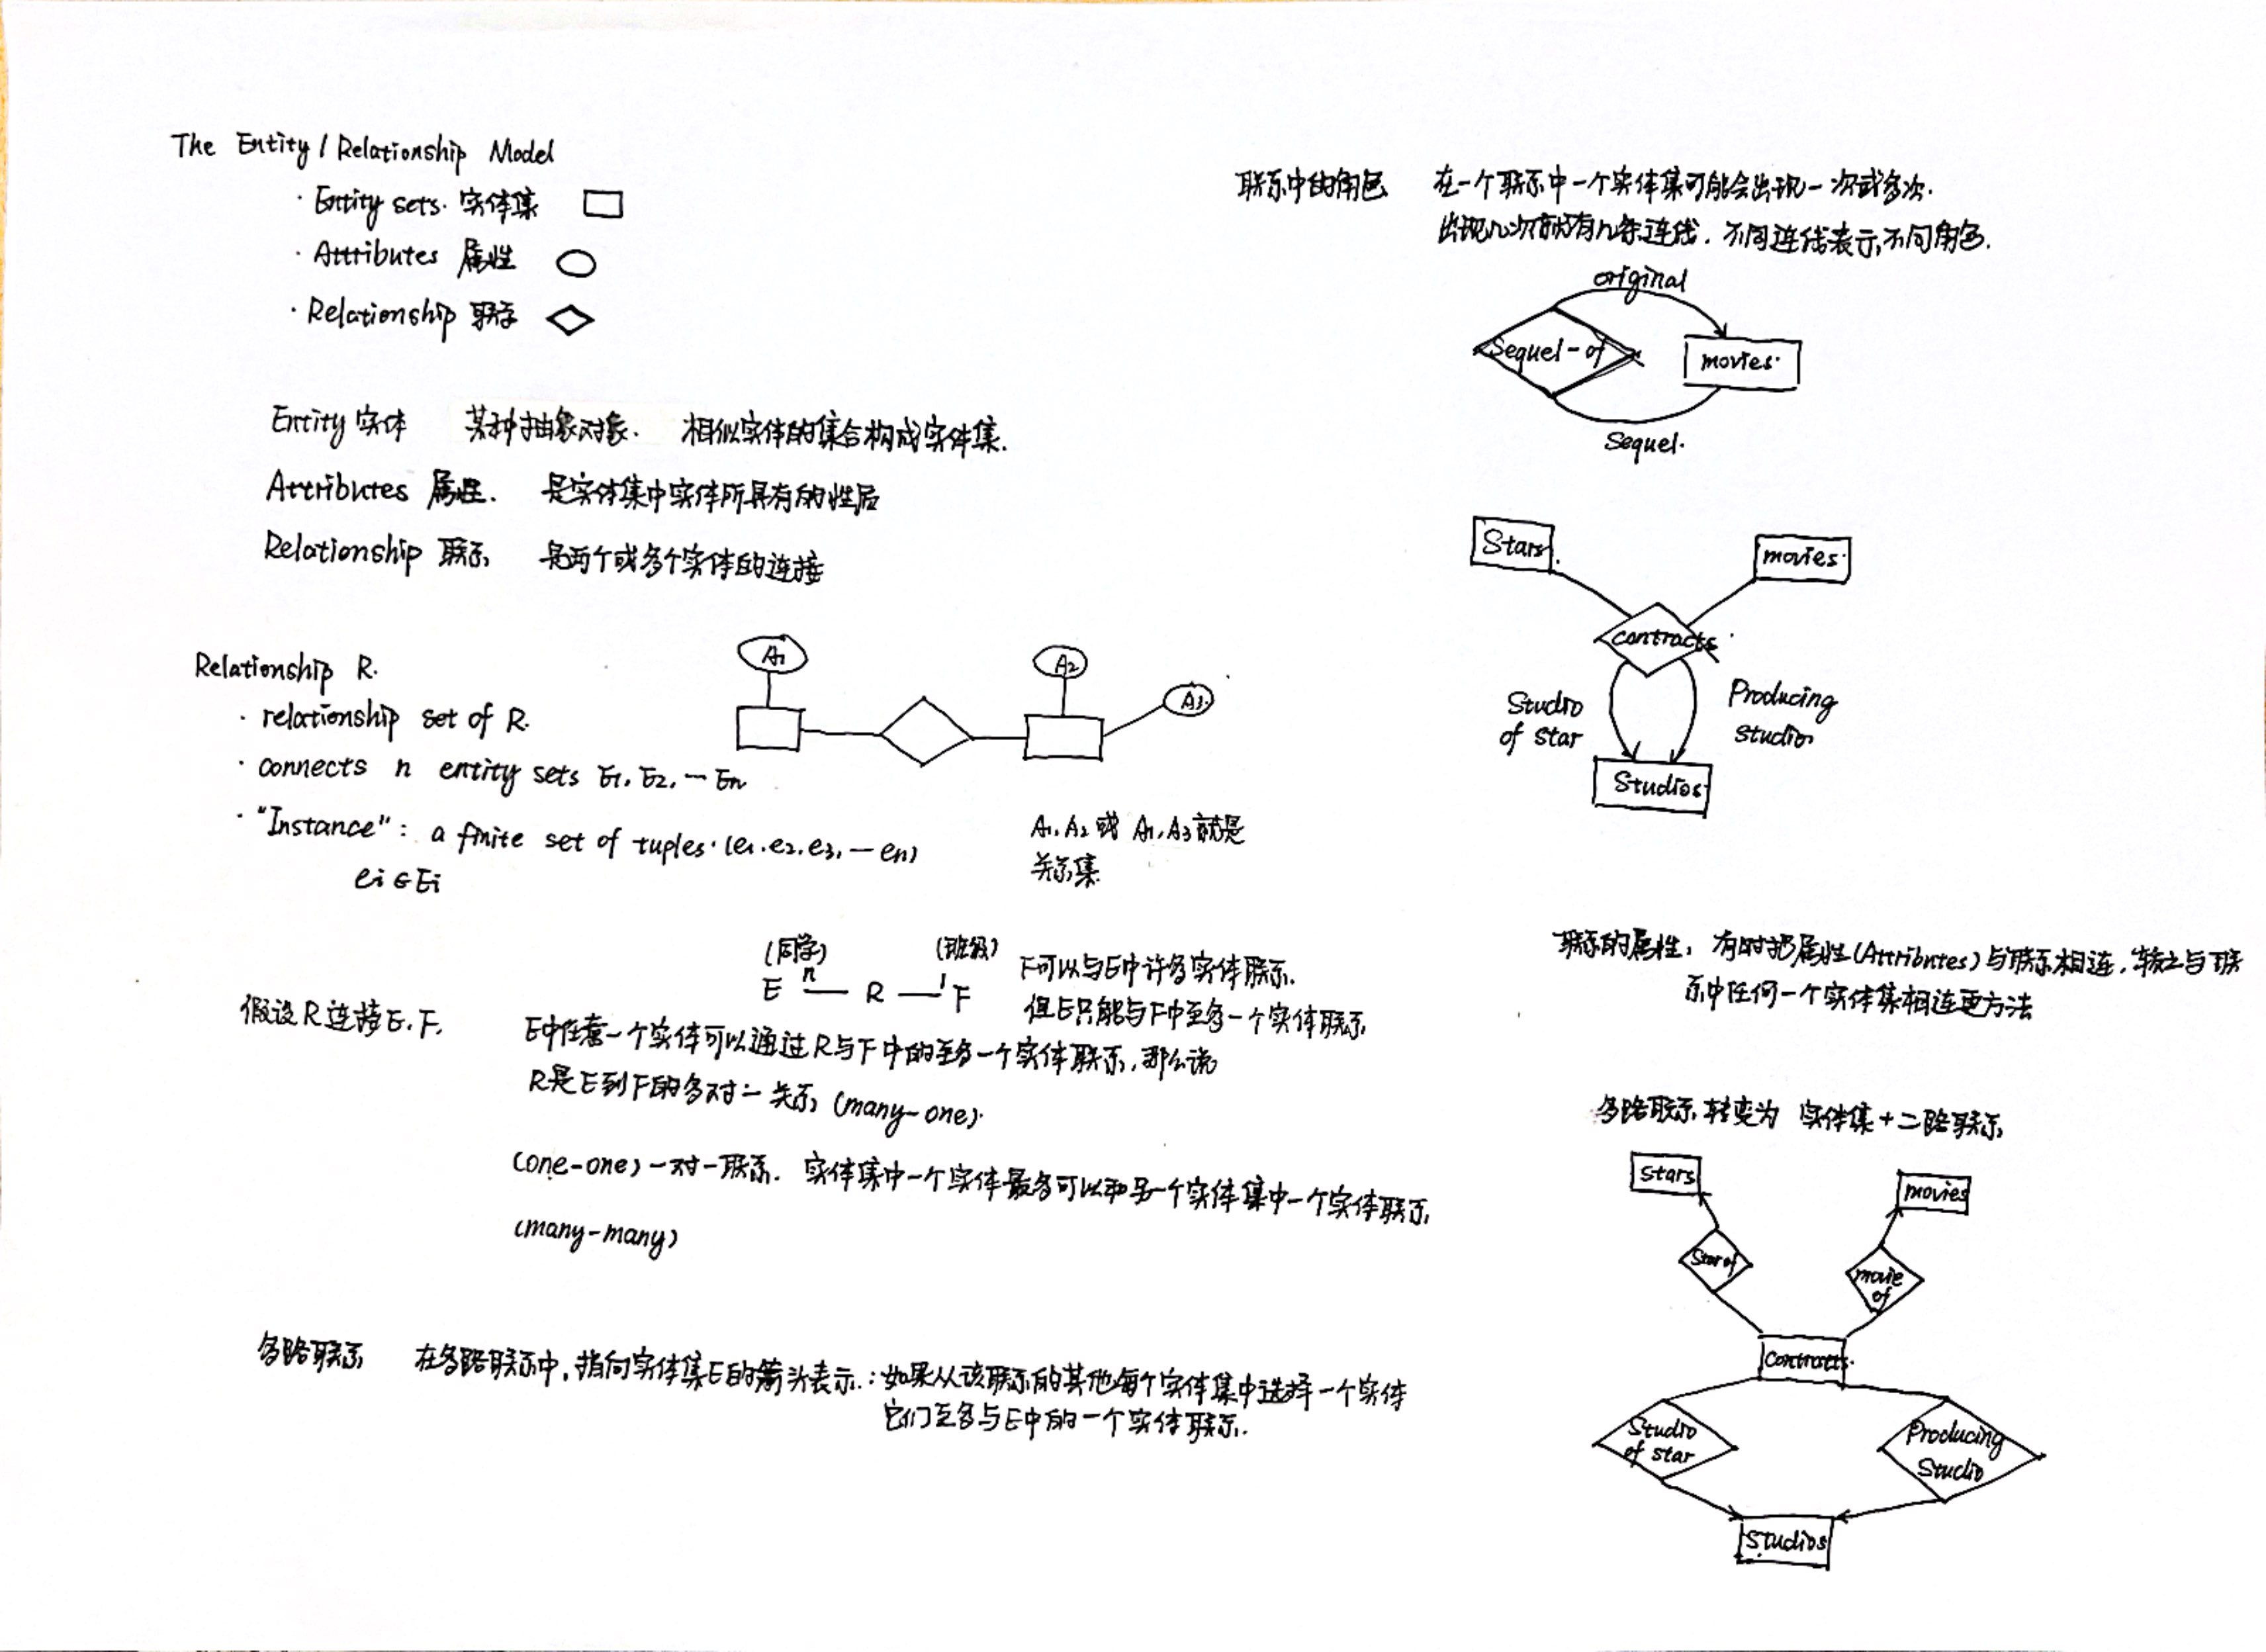 The Entity / Relationship Model
· Entity sets. 实体集
· Attributes 属性
· Relationship 联系
Entity 实体 某种抽象对象. 相似实体的集合构成实体集.
Attributes 属性. 是实体集中实体所具有的性质
Relationship 联系 是两个或多个实体的连接
Relationship R.
· relationship set of R.
· connects n entity sets E1, E2, … En
· "Instance": a finite set of tuples. (e1, e2, e3, … en)
ei ∈ Ei
A1
A2
A3
A1, A2 或 A1, A3 就是
关系集
(同学) (班级)
E n — R — 1 F
F可以与E中许多实体联系.
但E只能与F中至多一个实体联系
假设R连接E, F.
E中任意一个实体可以通过R与F中的至多一个实体联系, 那么说
R是E到F的多对一关系 (many-one).
(one-one) 一对一联系. 实体集中一个实体最多可以和另一个实体集中一个实体联系
(many-many)
多路联系 在多路联系中, 指向实体集E的箭头表示: 如果从该联系的其他每个实体集中选择一个实体
它们至多与E中的一个实体联系.
联系中的角色 在一个联系中一个实体集可能会出现一次或多次.
出现几次就有几条连线. 不同连线表示不同角色.
original
Sequel-of
movies
Sequel.
Stars
movies
contracts
Studio
of star
Producing
studio
Studios
联系的属性: 有时把属性(Attributes)与联系相连, 较之与联
系中任何一个实体集相连更方法
多路联系转变为 实体集 + 二路联系
stars
movies
Star of
movie
of
Contracts
Studio
of star
Producing
Studio
Studios